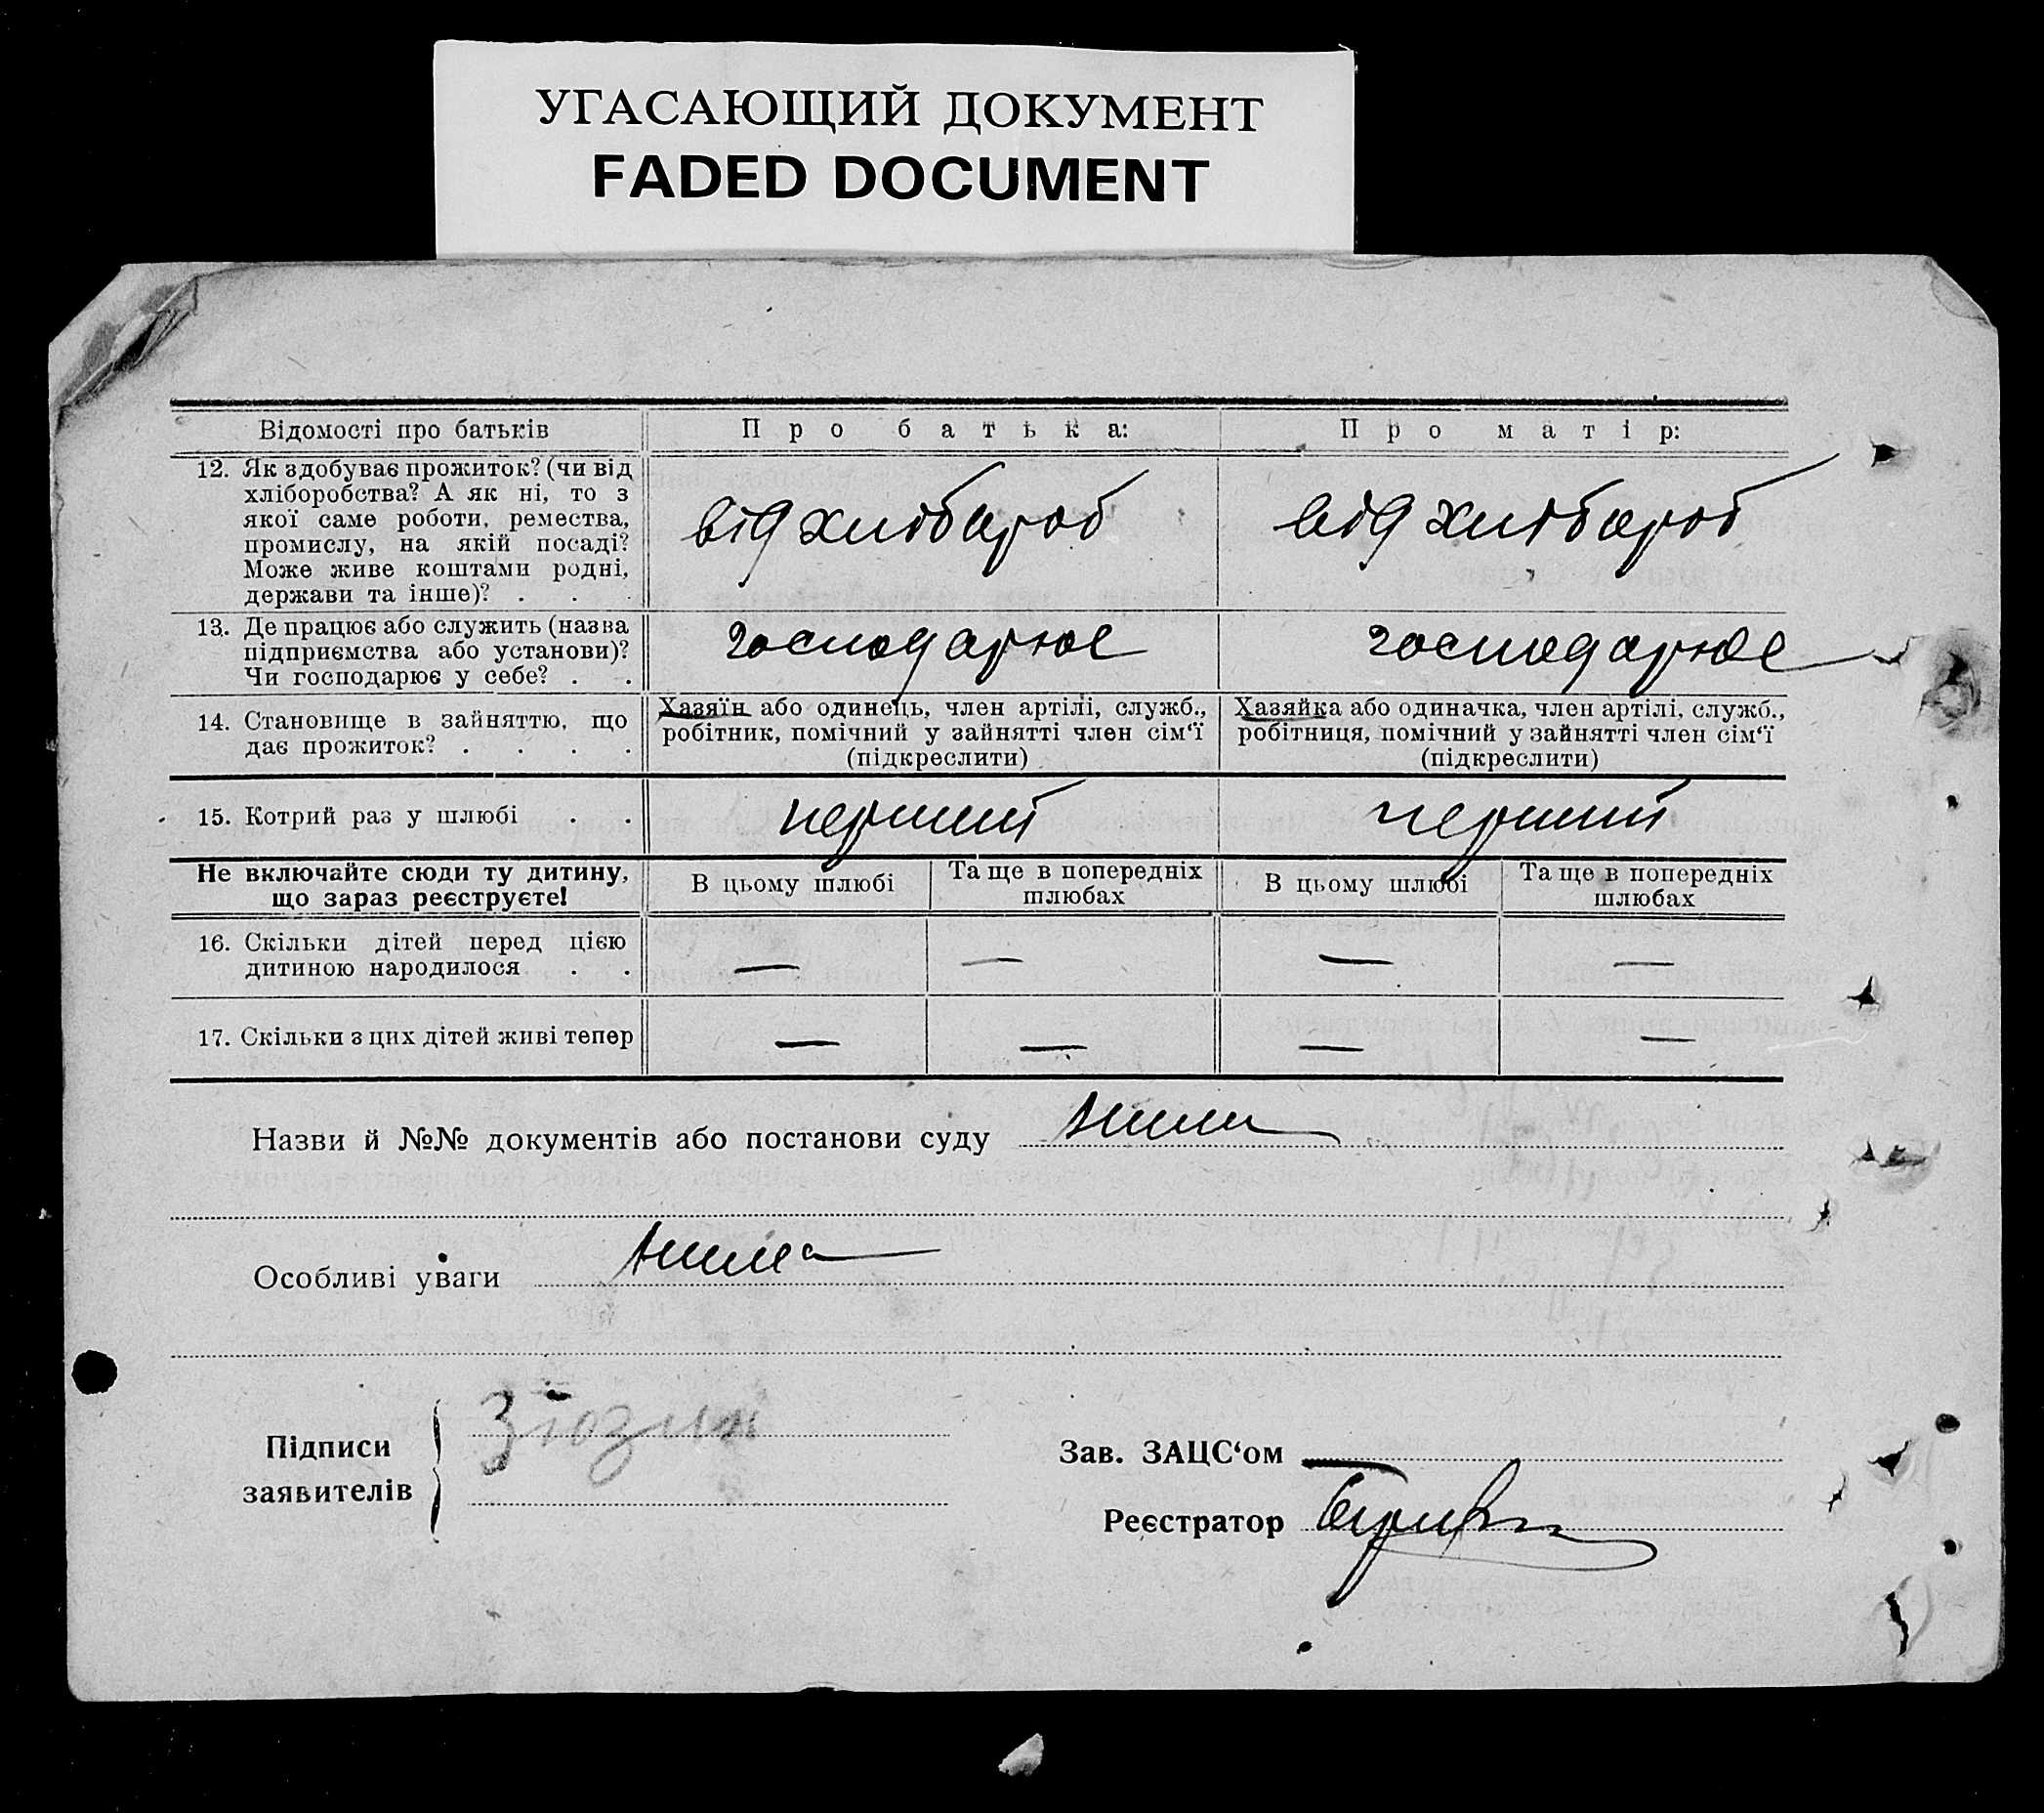 УГАСАЮЩИЙ ДОКУМЕНТ
FADED DOCUMENT
Відомості про батьків
Про батька:
Про матір:
12. Як здобуває прожиток? (чи від
хліборобства? А як ні, то з
якої саме роботи, ремества,
промислу, на якій посаді?
Може живе коштами родні,
держави та інше)? . . .
від хлібороб
від хлібороб
13. Де працює або служить (назва
підприємства або установи)?
Чи господарює у себе? . .
господарює
господарює
14. Становище в зайняттю, що
дає прожиток? . . . .
Хазяїн або одинець, член артілі, служб.,
робітник, помічний у зайнятті член сім‘ї
(підкреслити)
Хазяйка або одиначка, член артілі, служб.,
робітниця, помічний у зайнятті член сім‘ї
(підкреслити)
15. Котрий раз у шлюбі . .
перший
перший
Не включайте сюди ту дитину,
що зараз реєструєте!
В цьому шлюбі
Та ще в попередніх
шлюбах
В цьому шлюбі
Та ще в попередніх
шлюбах
16. Скільки дітей перед цією
дитиною народилося . .
— — — —
17. Скільки з цих дітей живі тепер
— — — —
Назви й №№ документів або постанови суду нима
Особливі уваги нима
Підписи
заявителів
Зав. ЗАЦС‘ом —
Реєстратор